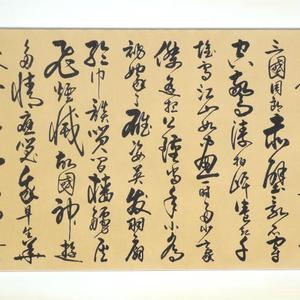 三國周郎赤壁亂石穿
空驚濤拍岸捲起千
堆雪江山如畫一時多少豪
傑遙想公瑾當年小喬
初嫁了雄姿英發羽扇
綸巾談笑間檣櫓灰
飛煙滅故國神遊
多情應笑我早生華